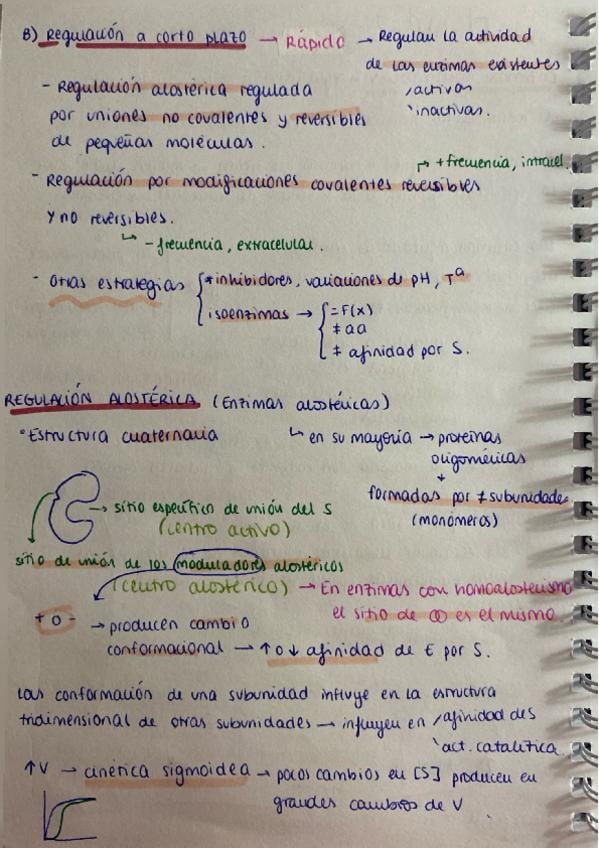 B) Regulación a corto plazo → Rápido → Regulan la actividad
de las enzimas existentes
- Regulación alostérica regulada , activan
por uniones no covalentes y reversibles ' inactivas.
de pequeñas moléculas.
↱ + frecuencia, intracel.
- Regulación por modificaciones covalentes reversibles
y no reversibles.
↳ - frecuencia, extracelular.
- Otras estrategias { * inhibidores, variaciones de pH, Tª
isoenzimas → { = F(x)
≠ aa
≠ afinidad por S.
REGULACIÓN ALOSTÉRICA (Enzimas alostéricas)
• Estructura cuaternaria ↳ en su mayoría → proteínas
oligoméricas
↓
formadas por ≠ subunidades
(monómeros)
→ sitio específico de unión del S
(centro activo)
sitio de unión de los moduladores alostéricos
(centro alostérico) → En enzimas con homoalosterismo
el sitio de ∞ es el mismo
+ o - → producen cambio
conformacional → ↑ o ↓ afinidad de E por S.
Las conformación de una subunidad influye en la estructura
tridimensional de otras subunidades → influyen en , afinidad del S
' act. catalítica.
↑V → cinética sigmoidea → pocos cambios en [S] producen en
grandes cambios de V